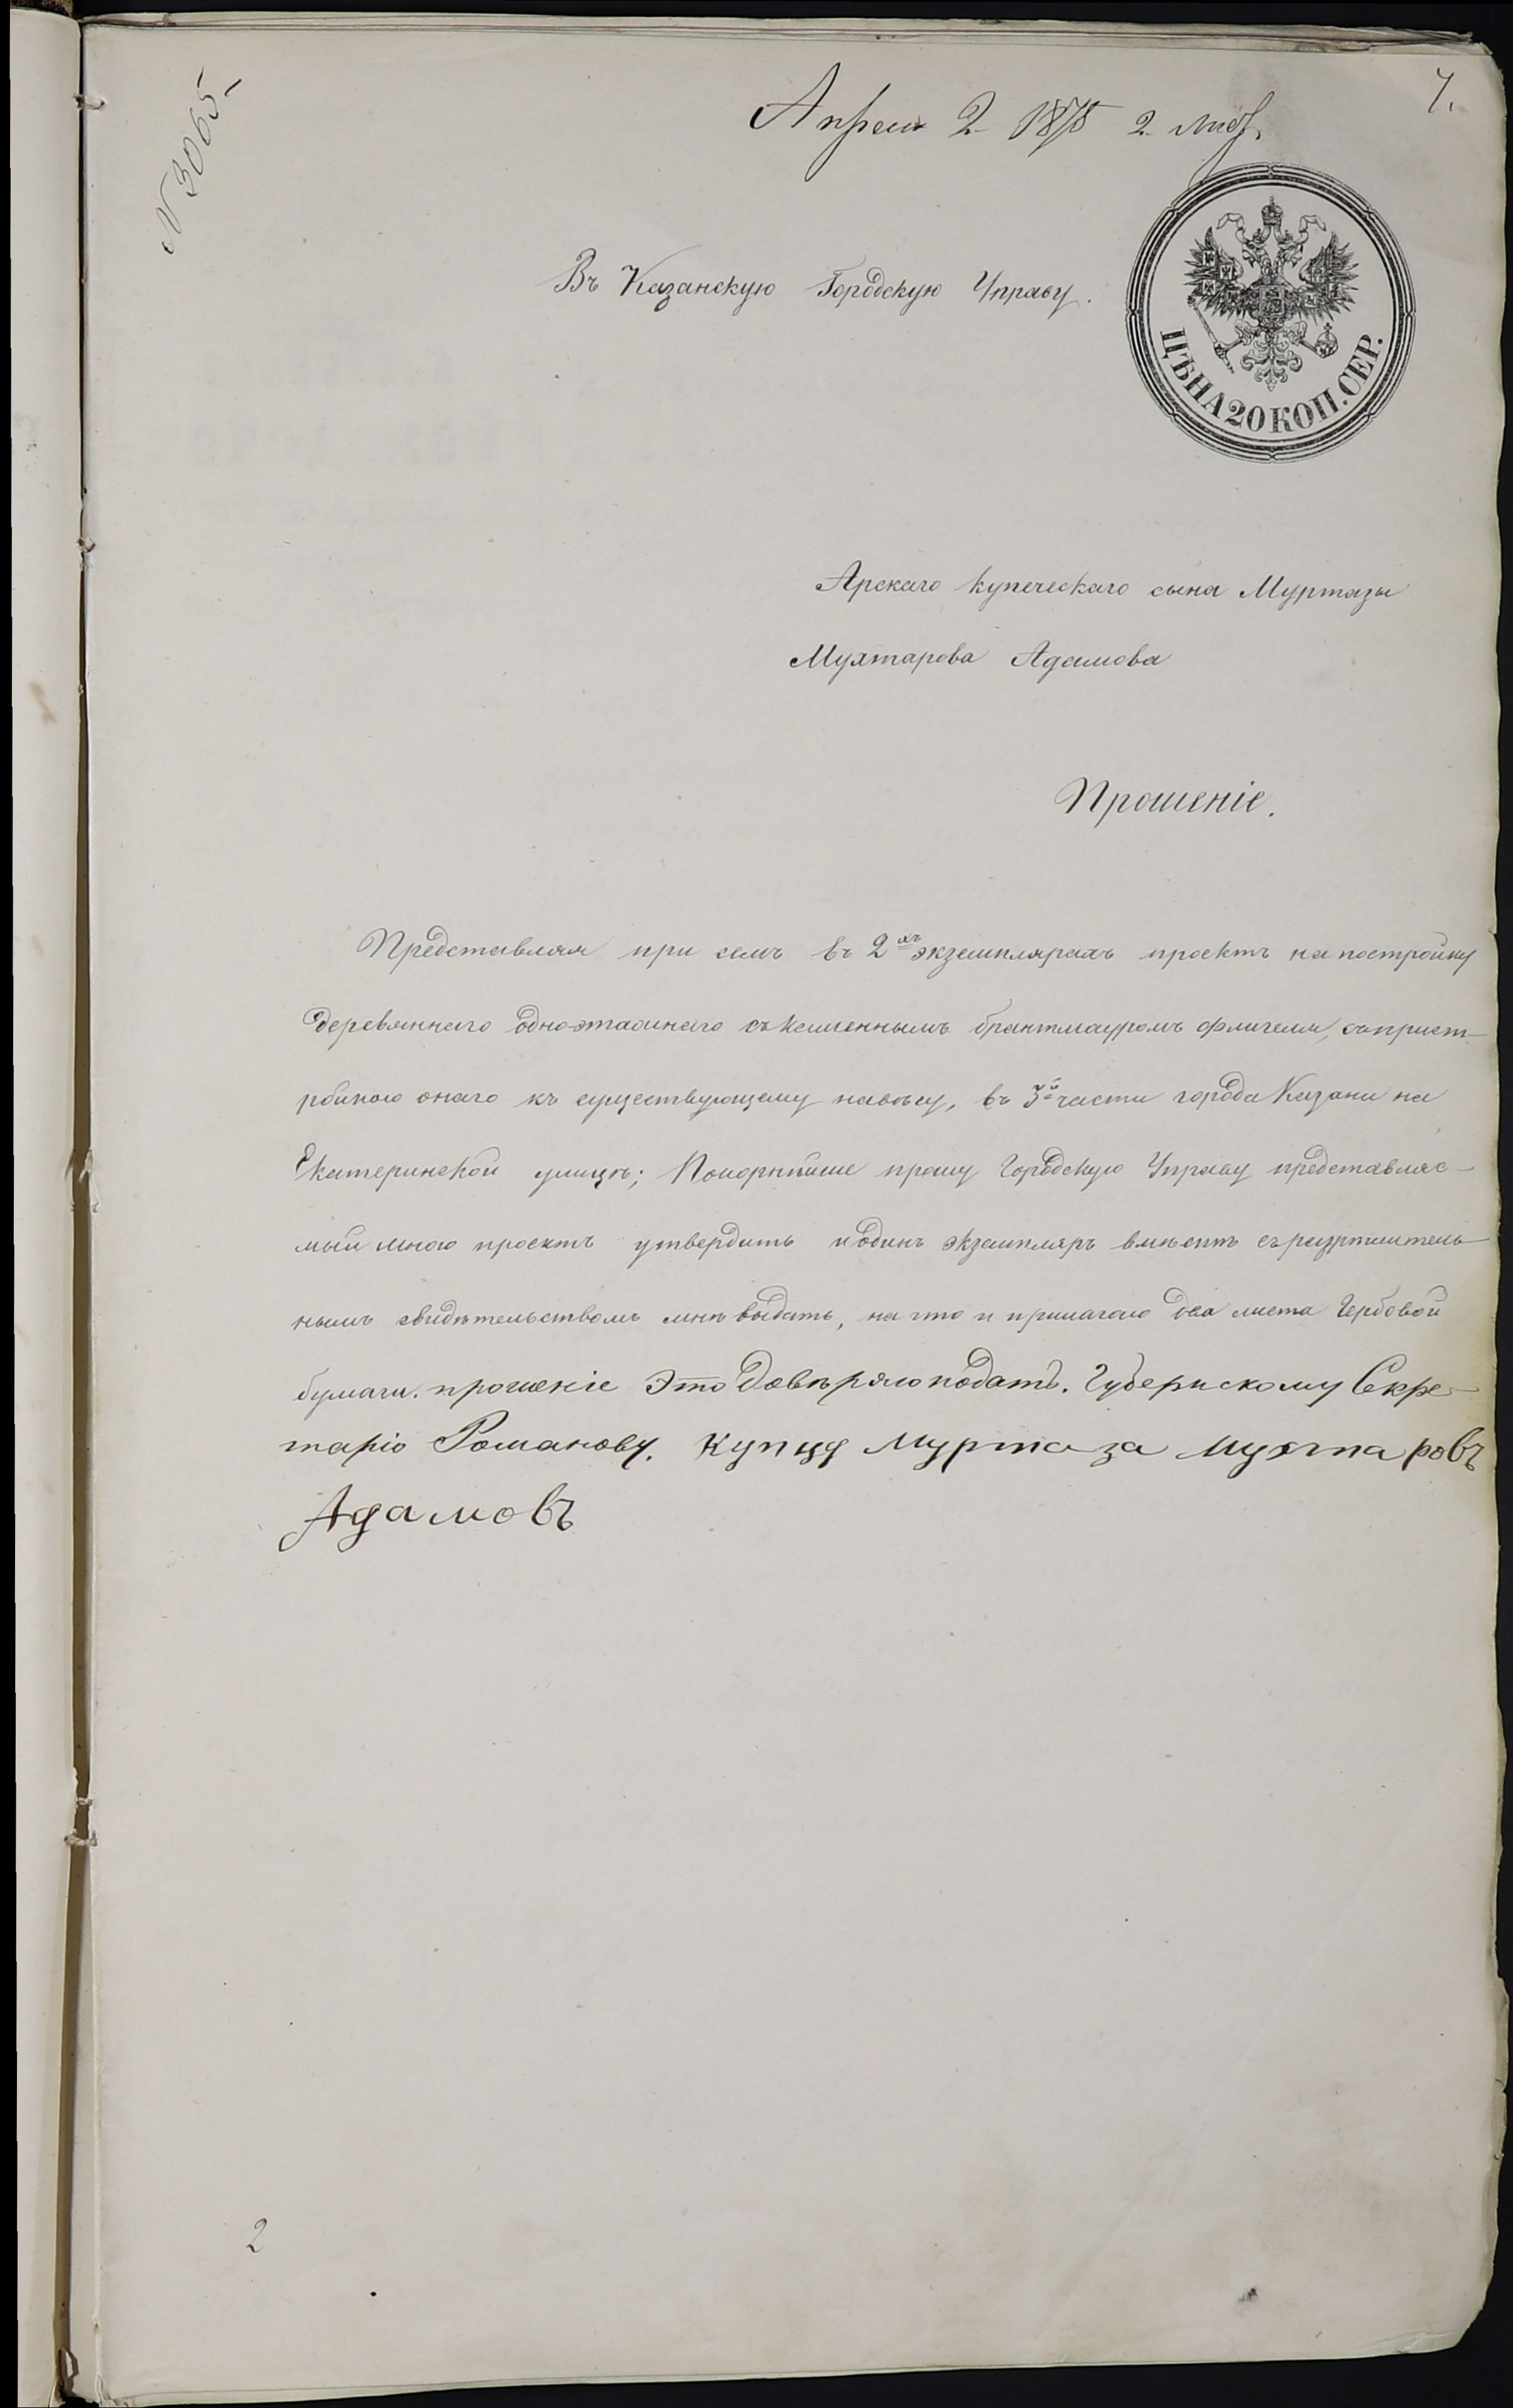 7.
Апреля 2 1875 2 лист.
N 3065
Въ Казанскую Городскую Управу.
ЦѢНА 20 КОП. СЕР.
Арскаго купеческаго сына Муртазы
Мухтарова Адамова
Прошеніе.
Представляя при семъ въ 2хъ экземплярахъ проектъ на постройку
деревяннаго одноэтажнаго съ каменнымъ брантмауромъ флигеля, съ прист-
ройкою онаго къ существующему навѣсу, въ 3й части города Казани на
Екатеринской улицѣ; Покорнѣйше прошу Городскую Управу представляе-
мый мною проектъ утвердить и одинъ экземпляръ вмѣстѣ съ разрѣшитель-
нымъ свидѣтельствомъ мнѣ выдать, на что и прилагаю два листа Гербовой
бумаги. прошеніе это довѣряю подать. Губернскому Секре-
тарю Романову. Муртаза Мухтаровъ
Адамовъ
2